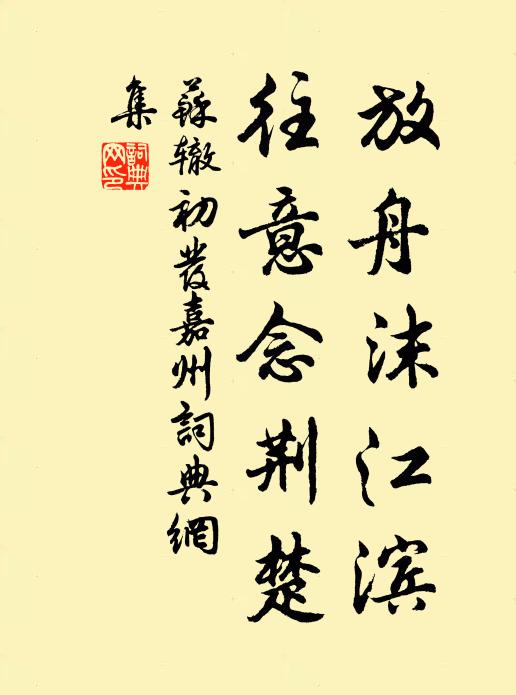 放舟沫江滨
往意念荆楚
蘇辙初發嘉州詞典網
集
詞典
网印